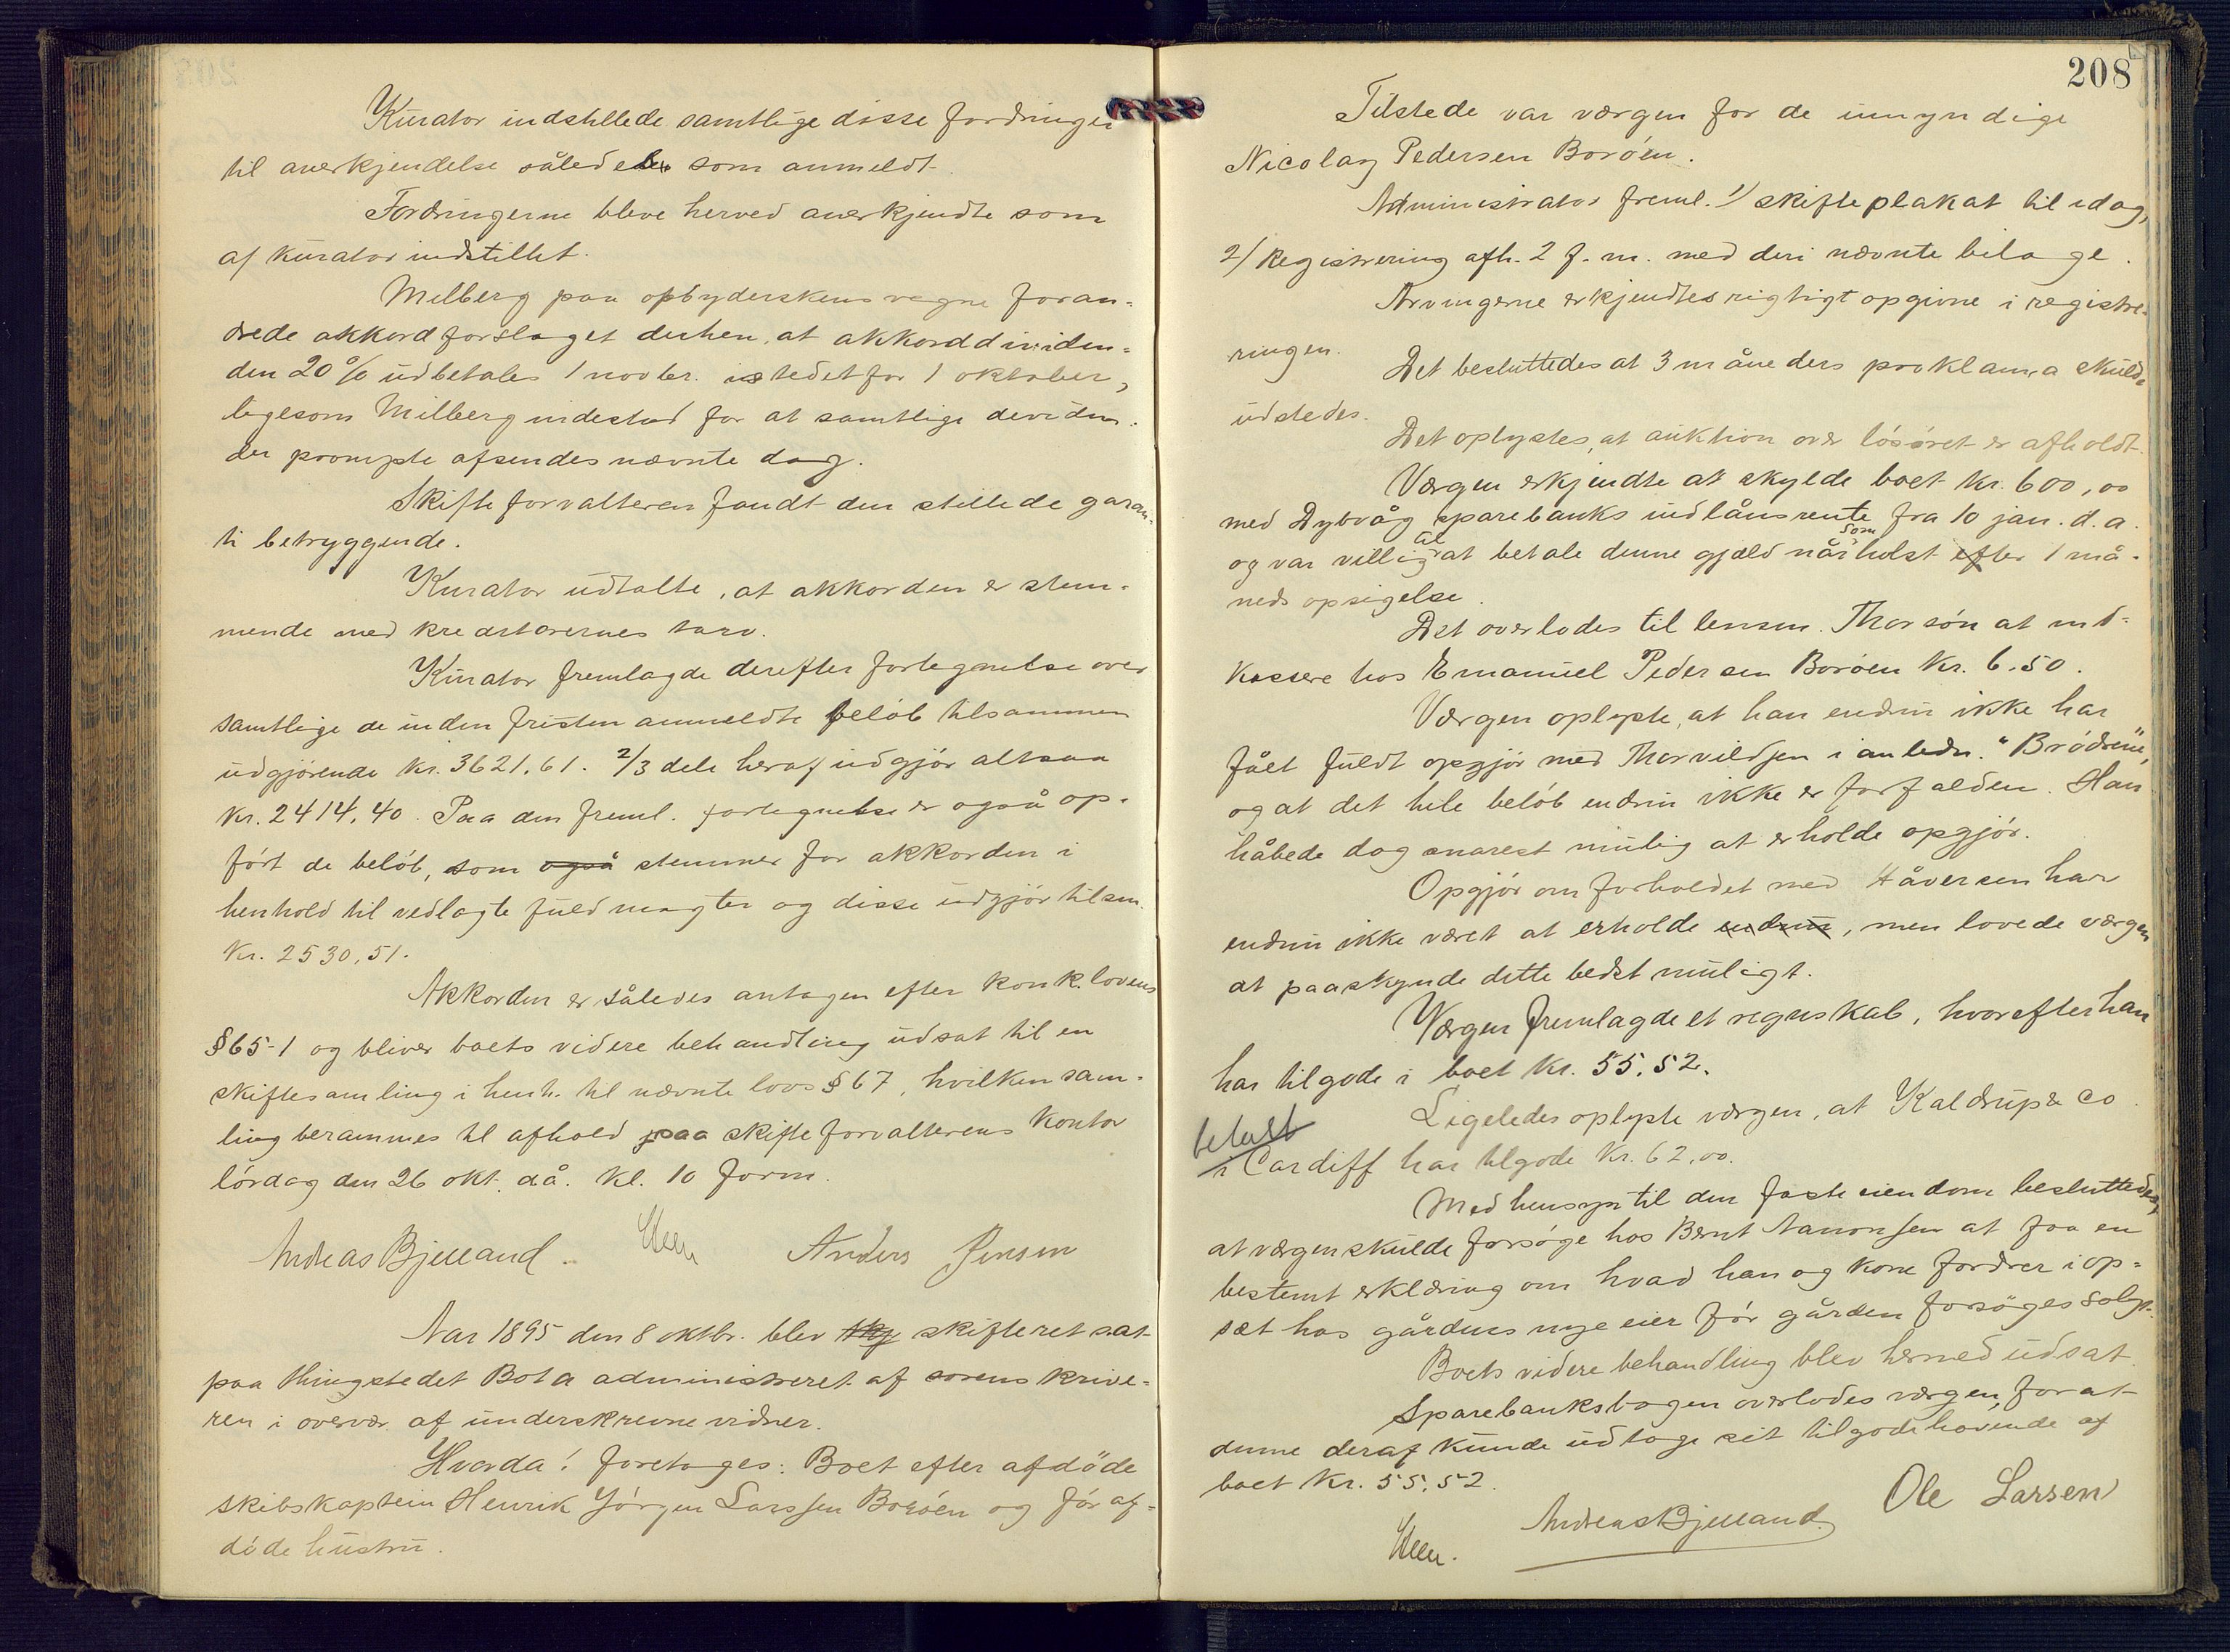 Kurator indstillede samtlige disse fordringer
til anerkjendelse således som anmeldt.
Fordringerne bleve herved anerkjendte som
af kurator indstillet.
Milberg paa opbyderskens vegne foran-
drede akkordforslaget derhen, at akkorddividen-
den 20% udbetales 1 novbr. istedetfor 1 oktober,
ligesom Milberg indestod for at samtlige dividen-
der prompte afsendes nævnte dag.
Skifteforvalteren fandt den stillede garan-
ti betryggende.
Kurator udtalte, at akkorden er stem-
mende med kreditorernes tarv.
Kurator fremlagde derefter fortegnelse over
samtlige de inden fristen anmeldte beløb tilsammen
udgjørende kr. 3621,61. 2/3 dele heraf udgjør altsaa
kr. 2414,40. Paa den freml. fortegnelse er også op-
ført de beløb, som også stemmer for akkorden i
henhold til vedlagte fuldmagter og disse udgjør tilsm.
kr. 2530,51.
Akkorden er således antagen efter konk.lovens
§65-1 og bliver boets videre behandling udsat til en
skiftesamling i henh. til nævnte lovs §67, hvilken sam-
ling berammes til afhold paa skifteforvalterens kontor
lørdag den 26 okt. då. kl. 10 form.
Andreas Bjelland. Heen Anders Jensen
Aar 1895 den 8 oktbr. blev skifteret sat
paa thingstedet Bota administreret af sorenskrive-
ren i overvær af underskrevne vidner.
Hvorda! foretoges: Boet efter afdøde
skibskaptein Henrik Jørgen Larssen Borøen og før af-
døde hustru.
208
Tilstede var værgen for de umyndige
Nicolay Pedersen Borøen.
Administrator freml. 1/ skifteplakat til idag,
2/ Registrering afh. 2 f. m. med deri nævnte bilage.
Arvingerne erkjendtes rigtigt opgivne i registre-
ringen.
Det besluttedes at 3 måneders proklama skulde
udstedes.
Det oplystes, at auktion over løsøret er afholdt.
Værgen erkjendte at skylde boet kr. 600,00
med Dybvåg sparebanks indlånsrente fra 10 jan. d.a.
og var villig til at betale denne gjæld når som helst efter 1 må-
neds opsigelse.
Det overlodes til lensm. Thorsøn at ind-
kassere hos Emanuel Pedersen Borøen kr. 6.50.
Værgen oplyste, at han endnu ikke har
fået fuldt opgjør med Thorvildsen i anledn. "Brødrene",
og at det hele beløb endnu ikke er forfalden. Han
håbede dog snarest mulig at erholde opgjør.
Opgjør om forholdet med Håversen har
endnu ikke været at erholde endnu, men lovede værgen
at paaskynde dette bedst muligt.
Værgen fremlagde et regnskab, hvorefter han
har tilgode i boet kr. 55,52.
Ligeledes oplyste værgen, at Kaldrup & Co.
betalt
i Cardiff har tilgode kr. 62,00.
Med hensyn til den faste eiendom besluttedes,
at værgen skulde forsøge hos Bernt Aanonsen at faa en
bestemt erklæring om hvad han og kone fordrer i op-
sæt hos gårdens nye eier før gården forsøges solgt.
Boets videre behandling blev hermed udsat.
Sparebanksbogen overlodes værgen, for at
denne deraf kunde udtage sit tilgodehavende af
boet kr. 55,52.
Heen. Andreas Bjelland. Ole Larsen